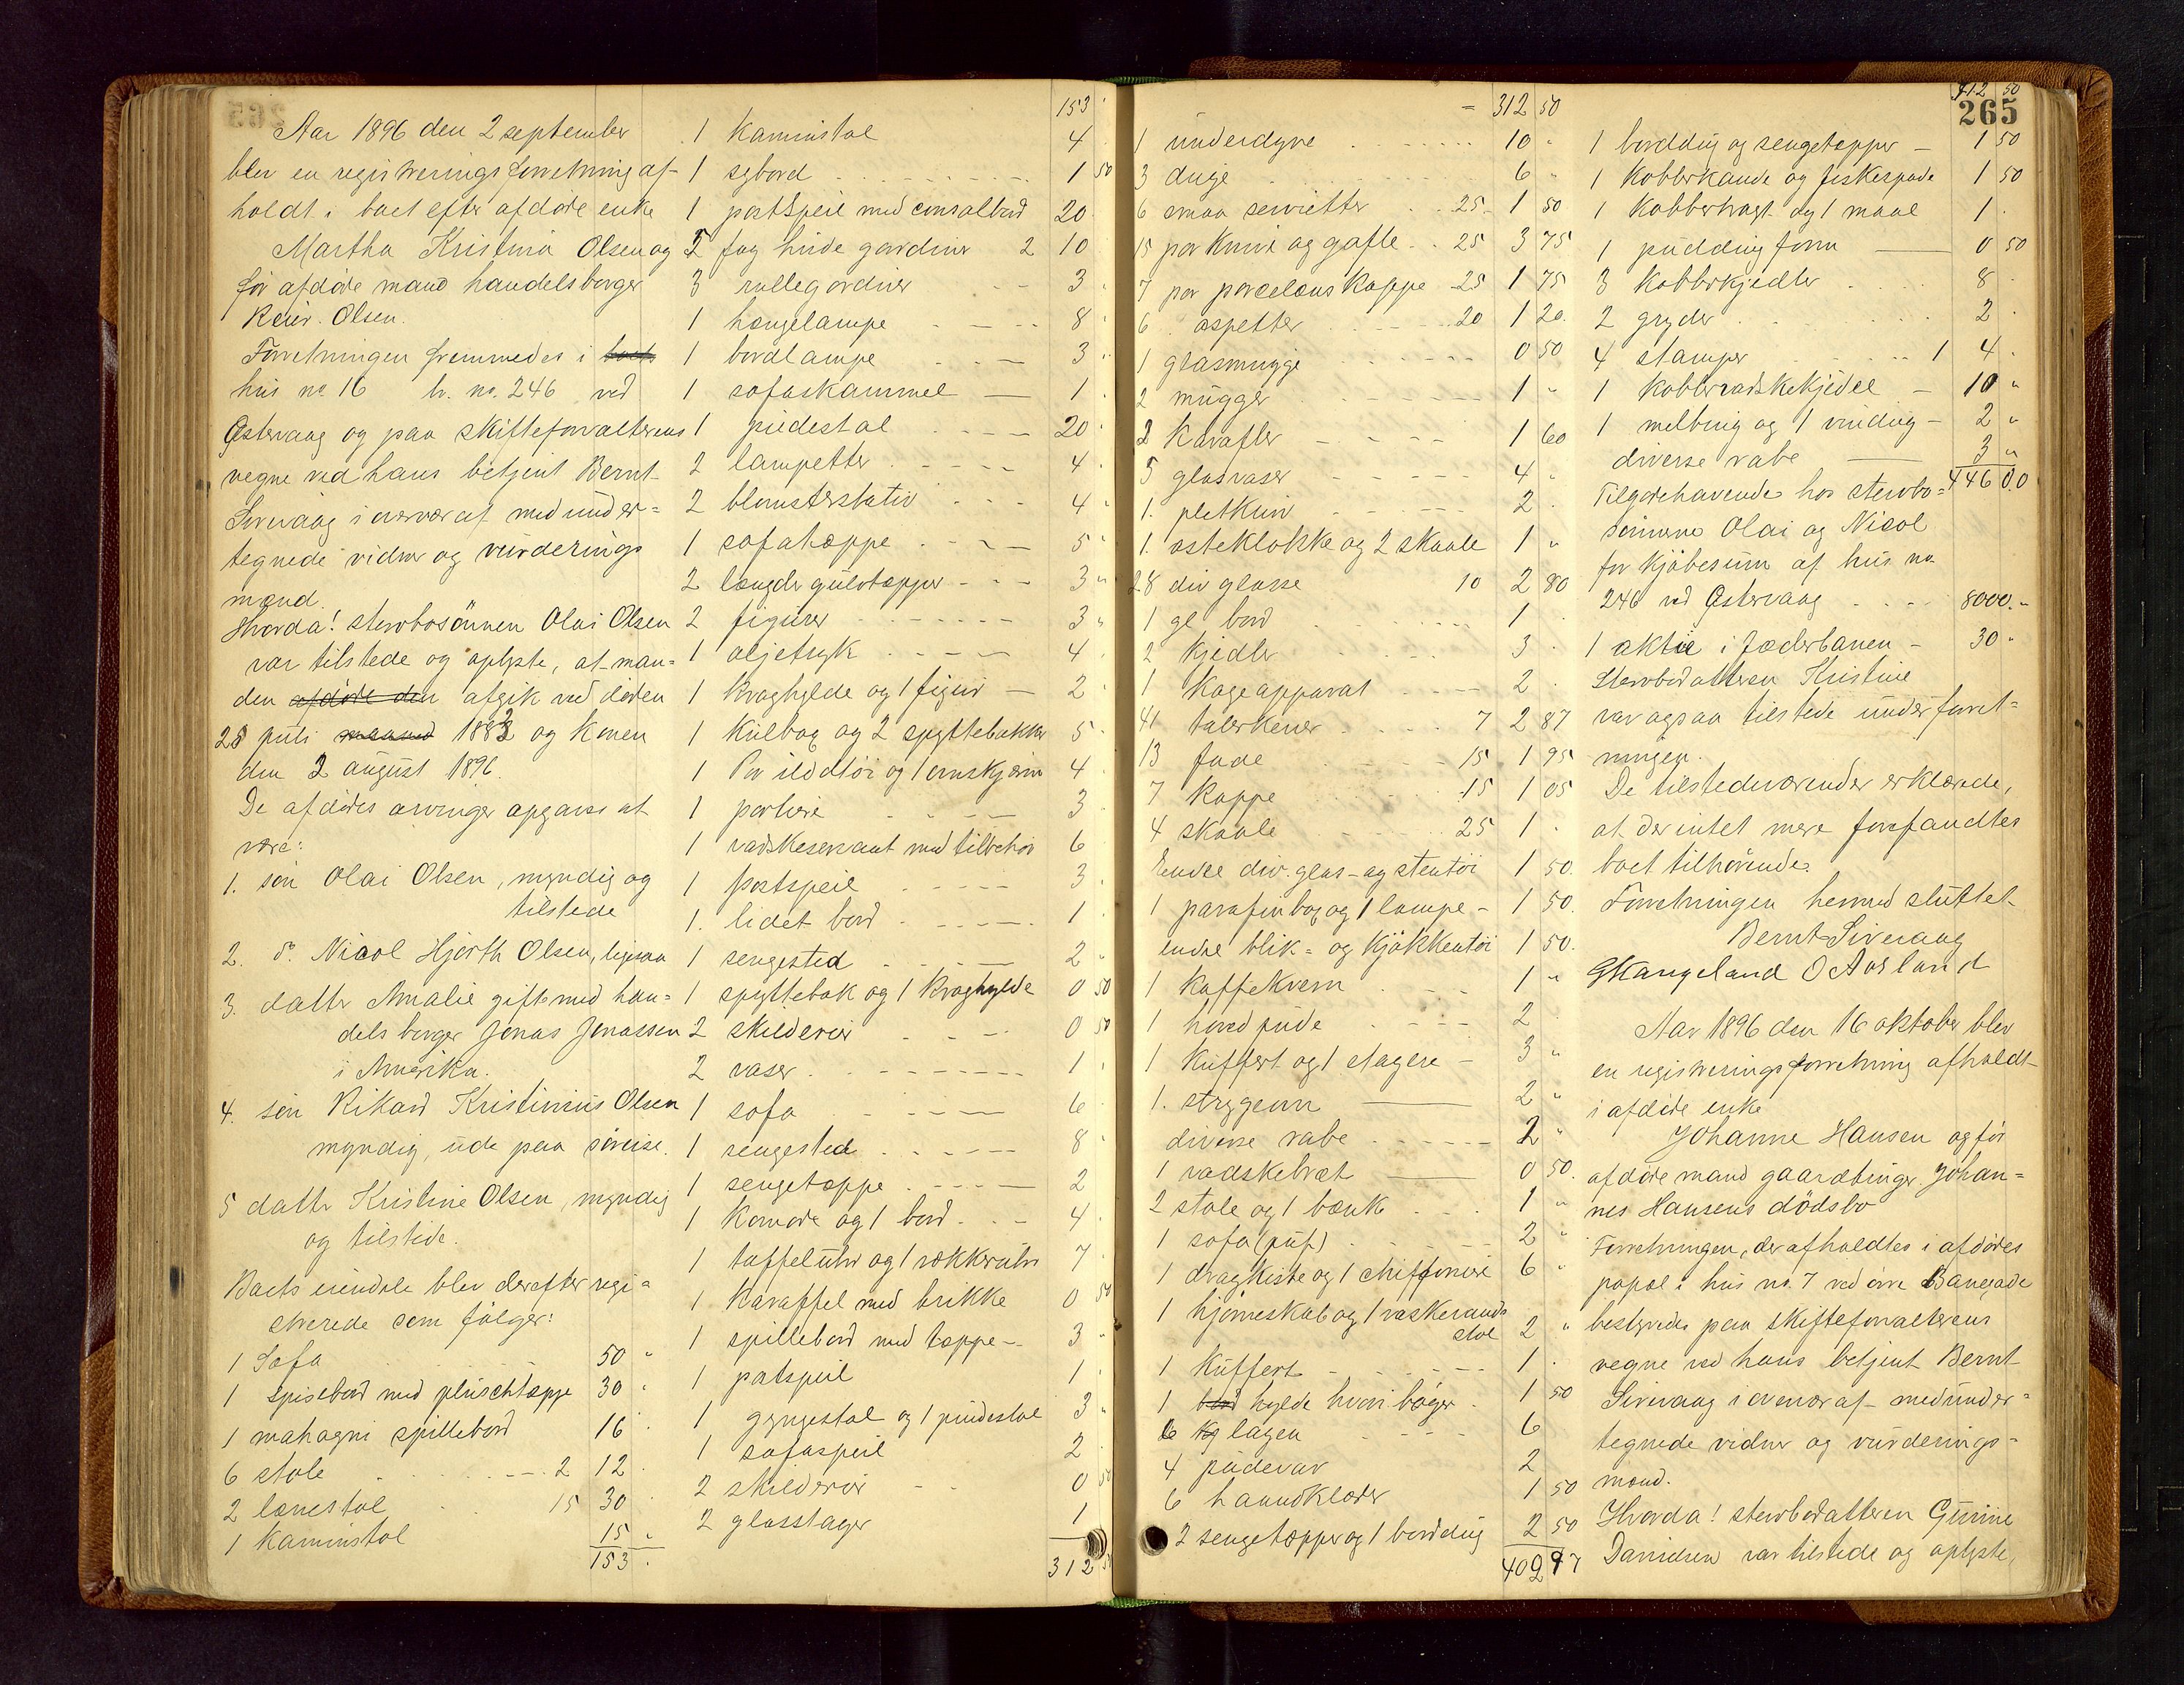 Aar 1896 den 2 september
blev en registreringsforretning af-
holdt i boet efter afdøde enke
Martha Kristina Olsen og
før afdøde mand handelsborger
Reier Olsen.
Forretningen fremmedes i boets
hus no 16 br. no. 246 ved
Østervaag og paa skifteforvalterens
vegne ved hans betjent Bernt
Sirevaag i overvær af medunder=
tegnede vidner og vurderings
mænd.
Hvorda! stervbosønnen Olai Olsen
var tilstede og oplyste, at man=
den afdøde den afgik ved døden
25 juli maaned 1883 og konen
den 2 august 1896.
De afdødes arvinger opgaves at
være:
1. søn Olai Olsen, myndig og
tilstede
2. do Nicol Hjorth Olsen, ligesaa
3. datter Amalie gift med han=
dels borger Jonas Jonassen
i Amerika.
4. søn Rikard Kristinius Olsen
myndig, ude paa søreise.
5 datter Kristine Olsen, myndig
og tilstede.
Boets eiendele blev derefter regi=
strerede som følger:
1 Sofa 50 "
1 spisebord med plüschtæppe 30 "
1 mahogni spillebord 16 "
6 stole 2 12 "
2 lænestol 15 30 "
1 kaminstol 15 "
153 "
153
1 kaminstol 4
1 sybord 1 50
1 postspeil med consolbord 20
5 fag hvide gardiner 2 10
3 rullegardiner 3
1 hængelampe 8
1 bordlampe 3
1 sofaskammel 1
1 piedestal 20
2 lampetter 4
2 blomsterstativ 4
1 sofatæppe 5
2 længder gulvtæpper 3
2 figurer 3
1 oljetryk 4
1 kroghylde og 1 figur 2
1 kulbox og 2 spyttebakker 5
1 Par ildtøi og 1 ovnskjærm 4
1 portiere 3
1 vadskeservant med tilbehør 6
1 postspeil 3
1. lidet bord 1
1 sengested 2
1 spyttebak og 1 kroghylde 0 50
2 skilderier 0 50
2 vaser 1
1 sofa 6
1 sengested 8
1 sengetæppe 2
1 komode og 1 bord 4
1 taffeluhr og 1 vækkeruhr 7
1 karaffel med brikke 0 50
1 spillebord med tæppe 3
1 potspeil 1
1 gyngestol og 1 pindestol 3
1 sofaspeil 2
2 skilderier 0 50
2 glasstager 1
312 50
312 50
1 underdyne 10 "
3 duge 6 "
6 smaa servietter 25 1 50
15 par knive og gafle 25 3 75
7 par porcelænskoppe 25 1 75
6 aspetter 20 1 20
1 glasmugge 0 50
2 mugger 1 "
2 karafler 1 60
5 glasvaser 4 "
1. pletkurv 2
1. osteklokke og 2 skaale 1 "
28 div glasse 10 2 80
1 gl bord 1
2 kjedler 3
1 kageapparat 2
41 talerkener 7 2 87
13 fade 15 1 95
7 koppe 15 1 05
4 skaale 25 1
Endel div. glas- og stentøi 1 50
1 parafinbox og 1 lampe 1 50
endel blik- og kjøkkentøi 1 50
1 kaffekvern 1 "
1 hovedpude 2
1 kuffert og 1 etagere 3 "
1. strygeovn 2 "
diverse rabe 2 "
1 vadskebræt 0 50
2 stole og 1 bænk 1 "
1 sofa (puf) 2 "
1 dragkiste og 1 chiffoniere 6 "
1 hjørneskab og 1 vaskevands
stol 2 "
1 kuffert 1
1 bord hylde hvori bøger 1 50
6 kg lagen 6
4 pudevar 2
6 haandklæder 1 50
2 sengetæpper og 1 borddug 2 50
409 97
265
412 50
1 borddug og sengetæpper 1 50
1 kobberkande og fiskespade 1 50
1 kobbertragt og 1 maal 1
1 puddingform 0 50
3 kobberkjedler 8
2 gryder 2
4 stamper 1 4
1 kobbervadskekjedel 10 "
1 melbing og 1 vindug 2 "
diverse rabe 3 "
446 00
Tilgodehavende hos stervbo=
sønnerne Olai og Nicol
for kjøbesum af hus no
246 ved Østervaag 8000."
1 aktie i Jæderbanen 30 "
Stervbodatteren Kristine
var ogsaa tilstede under forret=
ningen.
De tilstedeværender erklærede,
at der intet mere forefandtes
boet tilhørende.
Forretningen hermed sluttet
Bernt Sirevaag
GKangeland O Aasland
Aar 1896 den 16 oktober blev
en registreringsforretning afholdt
i afdøde enke
Johanne Hansen og før
afdøde mand gaardbruger Johan=
nes Hansens dødsbo
Forretningen, der afholdtes i afdødes
bopæl i hus no. 7 ved øvre Banegade
bestyredes paa skifteforvalterens
vegne ved hans betjent Bernt
Sirevaag i overvær af medunder=
tegnede vidner og vurderings=
mænd.
Hvorda! stervbodatteren Gurine
Davidsen var tilstede og oplyste,